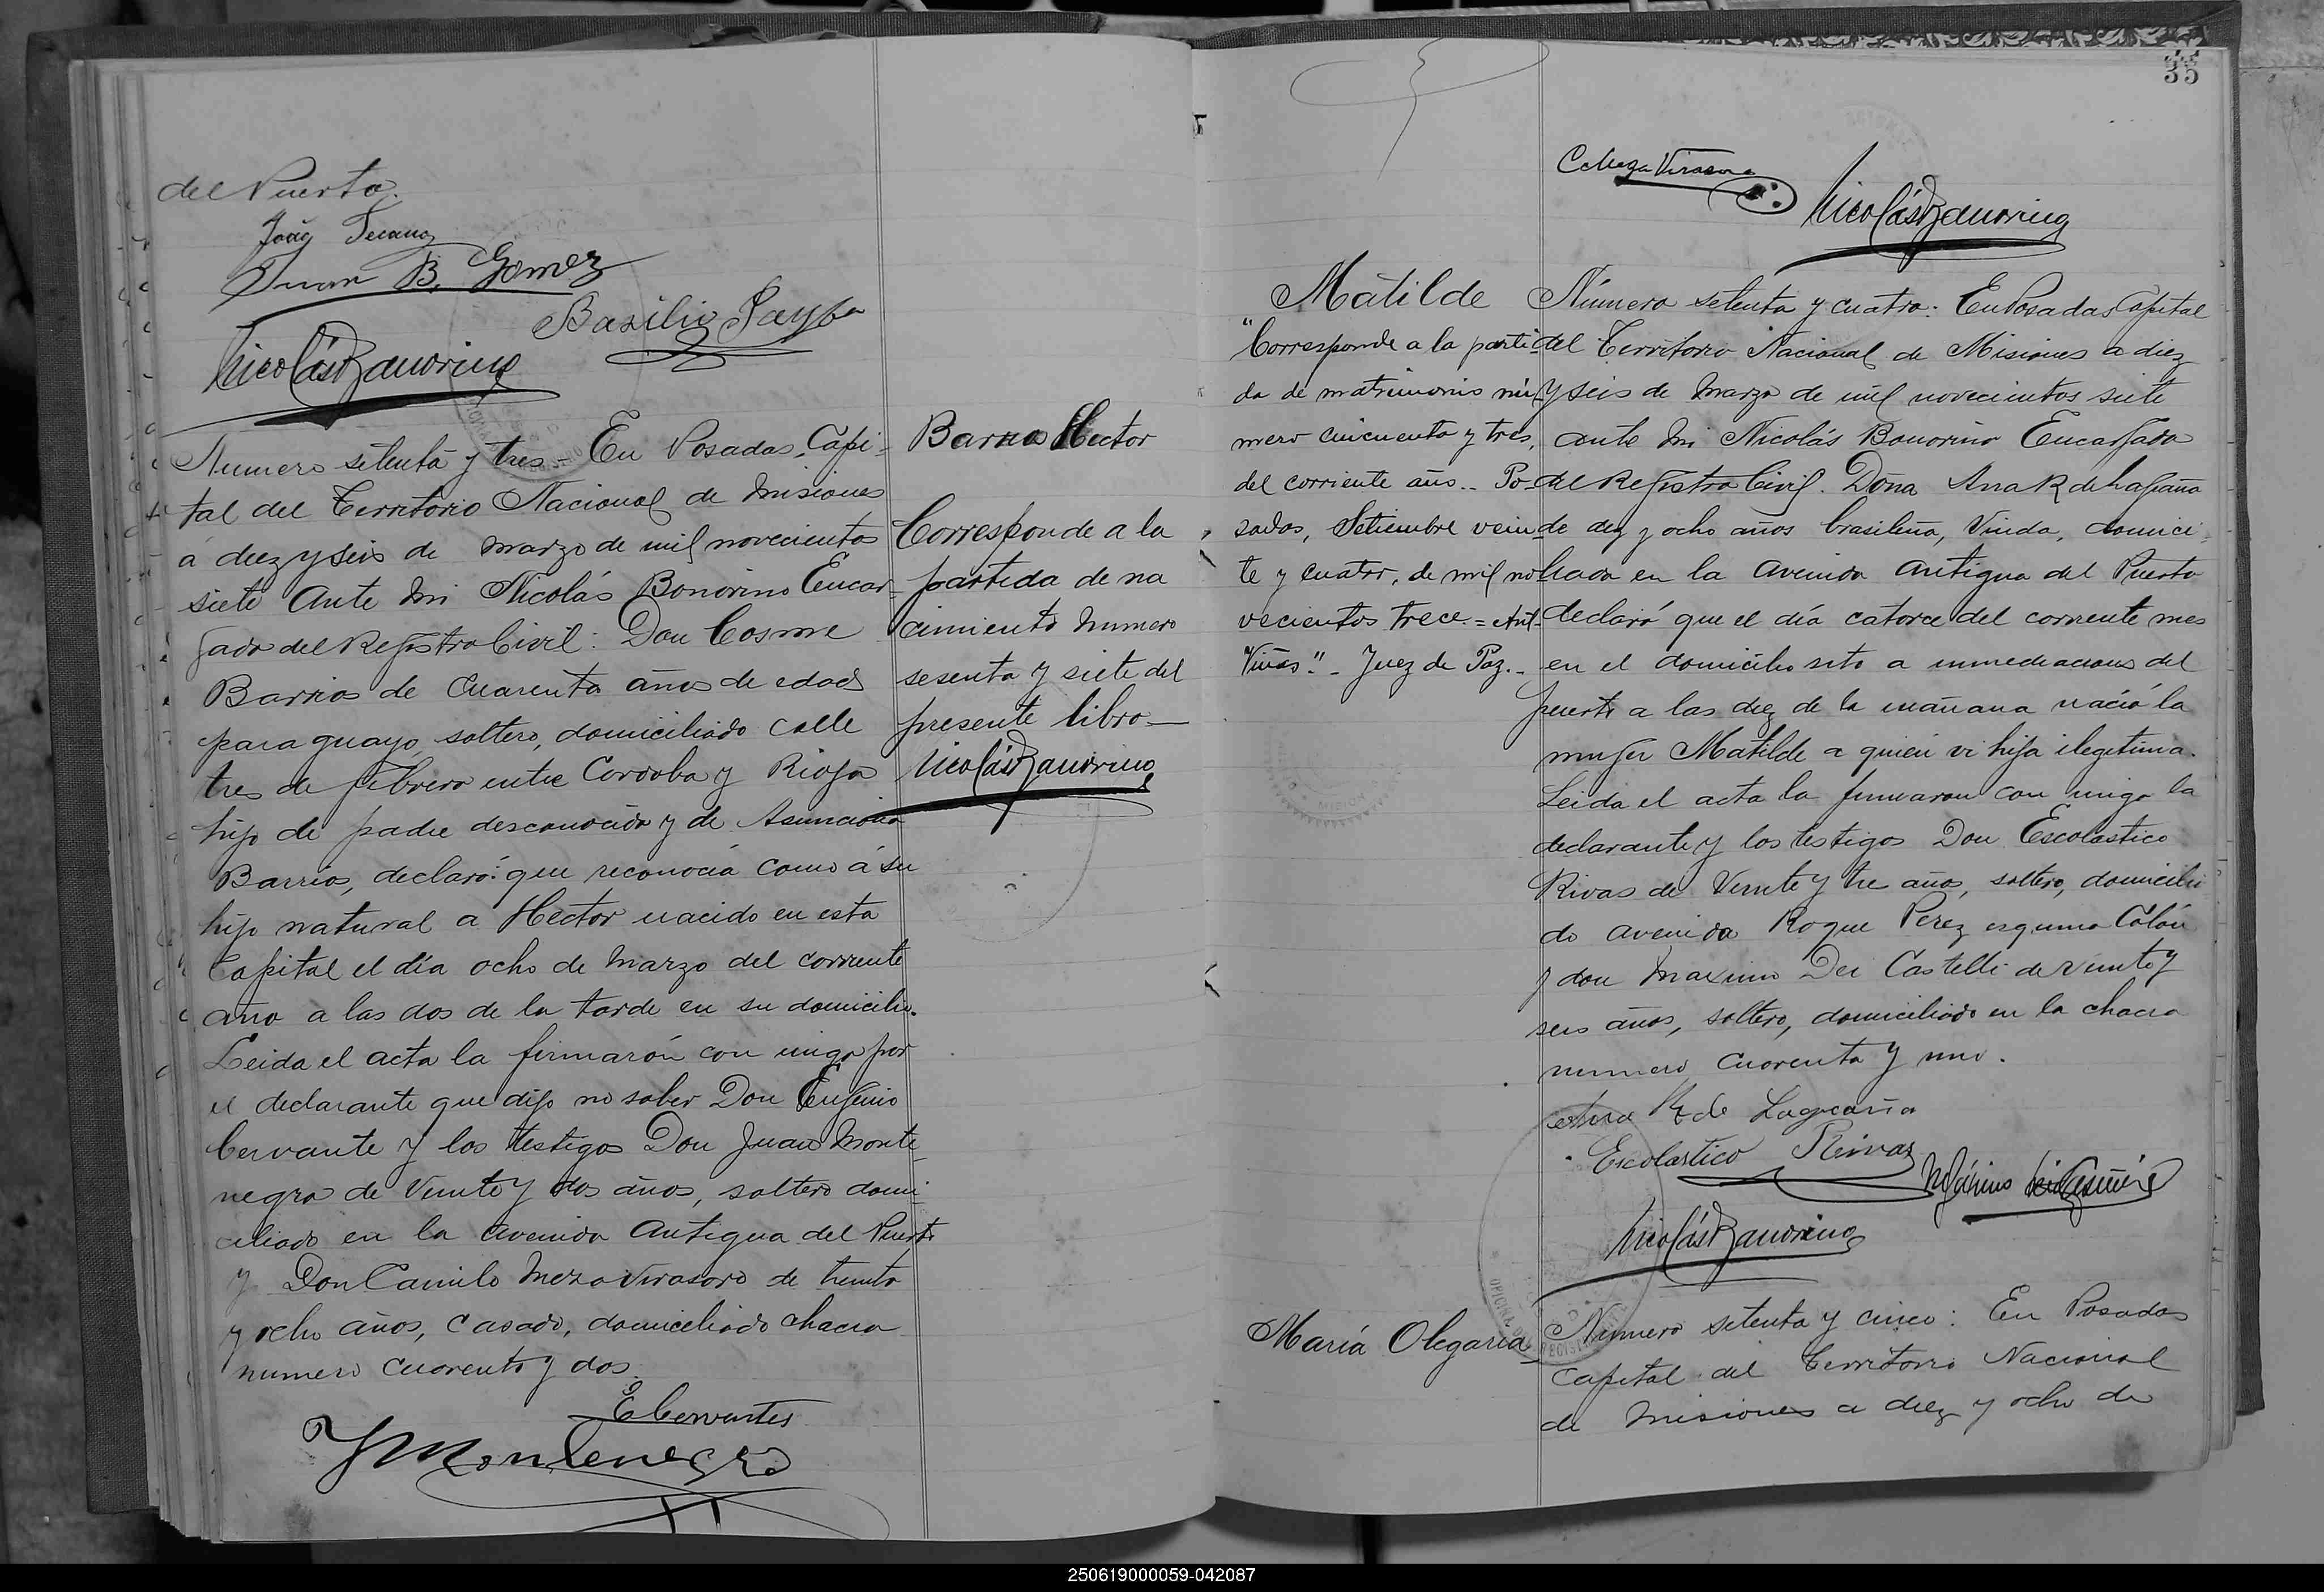 del Puerto.
Juan B. Gomez
Basilio
Nicolás Bonorino
Numero setenta y tres - En Posadas, Capi-
tal del Territorio Nacional de Misiones
á diez y seis de marzo de mil novecientos
siete Ante mi Nicolás Bonorino Encar-
gado del Registro Civil: Don Cosme
Barrios de cuarenta años de edad
paraguayo, soltero, domiciliado calle
tres de febrero entre Cordoba y Rioja
hijo de padre desconocido y de Asunciona
Barrios, declaró: que reconocía como á su
hijo natural a Hector nacido en esta
Capital el día ocho de Marzo del corriente
año a las dos de la tarde en su domicilio.
Leida el acta la firmarón con migo por
el declarante que dijo no saber Don Eugenio
Cervante y los testigos Don Juan Monte-
negro de Veinte y dos años, soltero domi-
ciliado en la Avenida Antigua del Puerto
y Don Camilo Meza Virasoro de treinta
y ocho años, casado, domiciliado chacra
numero cuarenta y dos.
E Cervantes
J Montenegro
Barrios Hector
Corresponde a la
partida de na
cimiento numero
sesenta y siete del
presente libro
Nicolás Bonorino
35
C Meza Virasoro
Nicolás Bonorino
Matilde
"Corresponde a la parti-
da de matrimonio nú-
mero cincuenta y tres,
del corriente año.. Po-
sadas, Setiembre vein-
te y cuatro, de mil no
vecientos trece.= Ant.
Viñas". - Juez de Paz..
Número setenta y cuatro: En Posadas Capital
del Territorio Nacional de Misiones a diez
y seis de Marzo de mil novecientos siete
ante mi Nicolás Bonorino Encargado
del Registro Civil. Doña Ana R de Lagraña
de diez y ocho años brasileña, Viuda, domici-
liada en la Avenida Antigua del Puerto
declaró que el día catorce del corriente mes
en el domicilio sito a inmediaciones del
puerto a las diez de la mañana nació la
mujer Matilde a quien vi hija ilegitima.
Leida el acta la firmaron con migo la
declarante y los testigos Don Escolastico
Rivas de Veinte y tre años, soltero, domicilia
do avenida Roque Perez esquina Colón
y don Maximo Dei Castelli de veinte y
seis años, soltero, domiciliado en la chacra
numero cuarenta y uno.
R de Lagraña
Escolastico Reivas
Nicolás Bonorino
María Olegaria
Numero setenta y cinco: En Posadas
Capital del Territorio Nacional
de Misiones a diez y ocho de
250619000059-042087